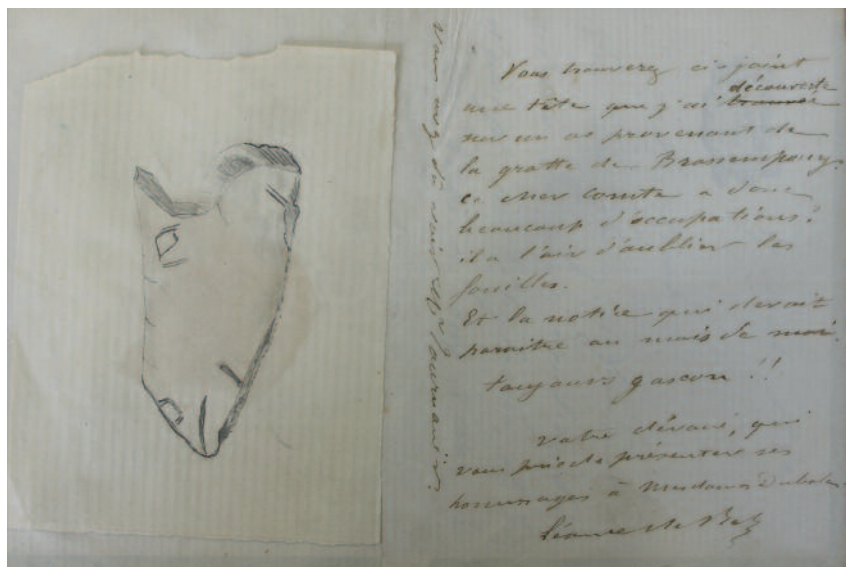 Vous trouverez ci-joint
une tête que j'ai trouvée découverte
sur un os provenant de
la grotte de Brassempouy.
ce cher comte a donc
beaucoup d'occupations?
il a l'air d'oublier les
fouilles.
Et la notice qui devait
paraitre au mois de mai.
toujours gascon !!
votre dévoué, qui
vous prie de présenter ses
hommages à Madame Dubalen
Léonce de
Vous avez dû voir Mr